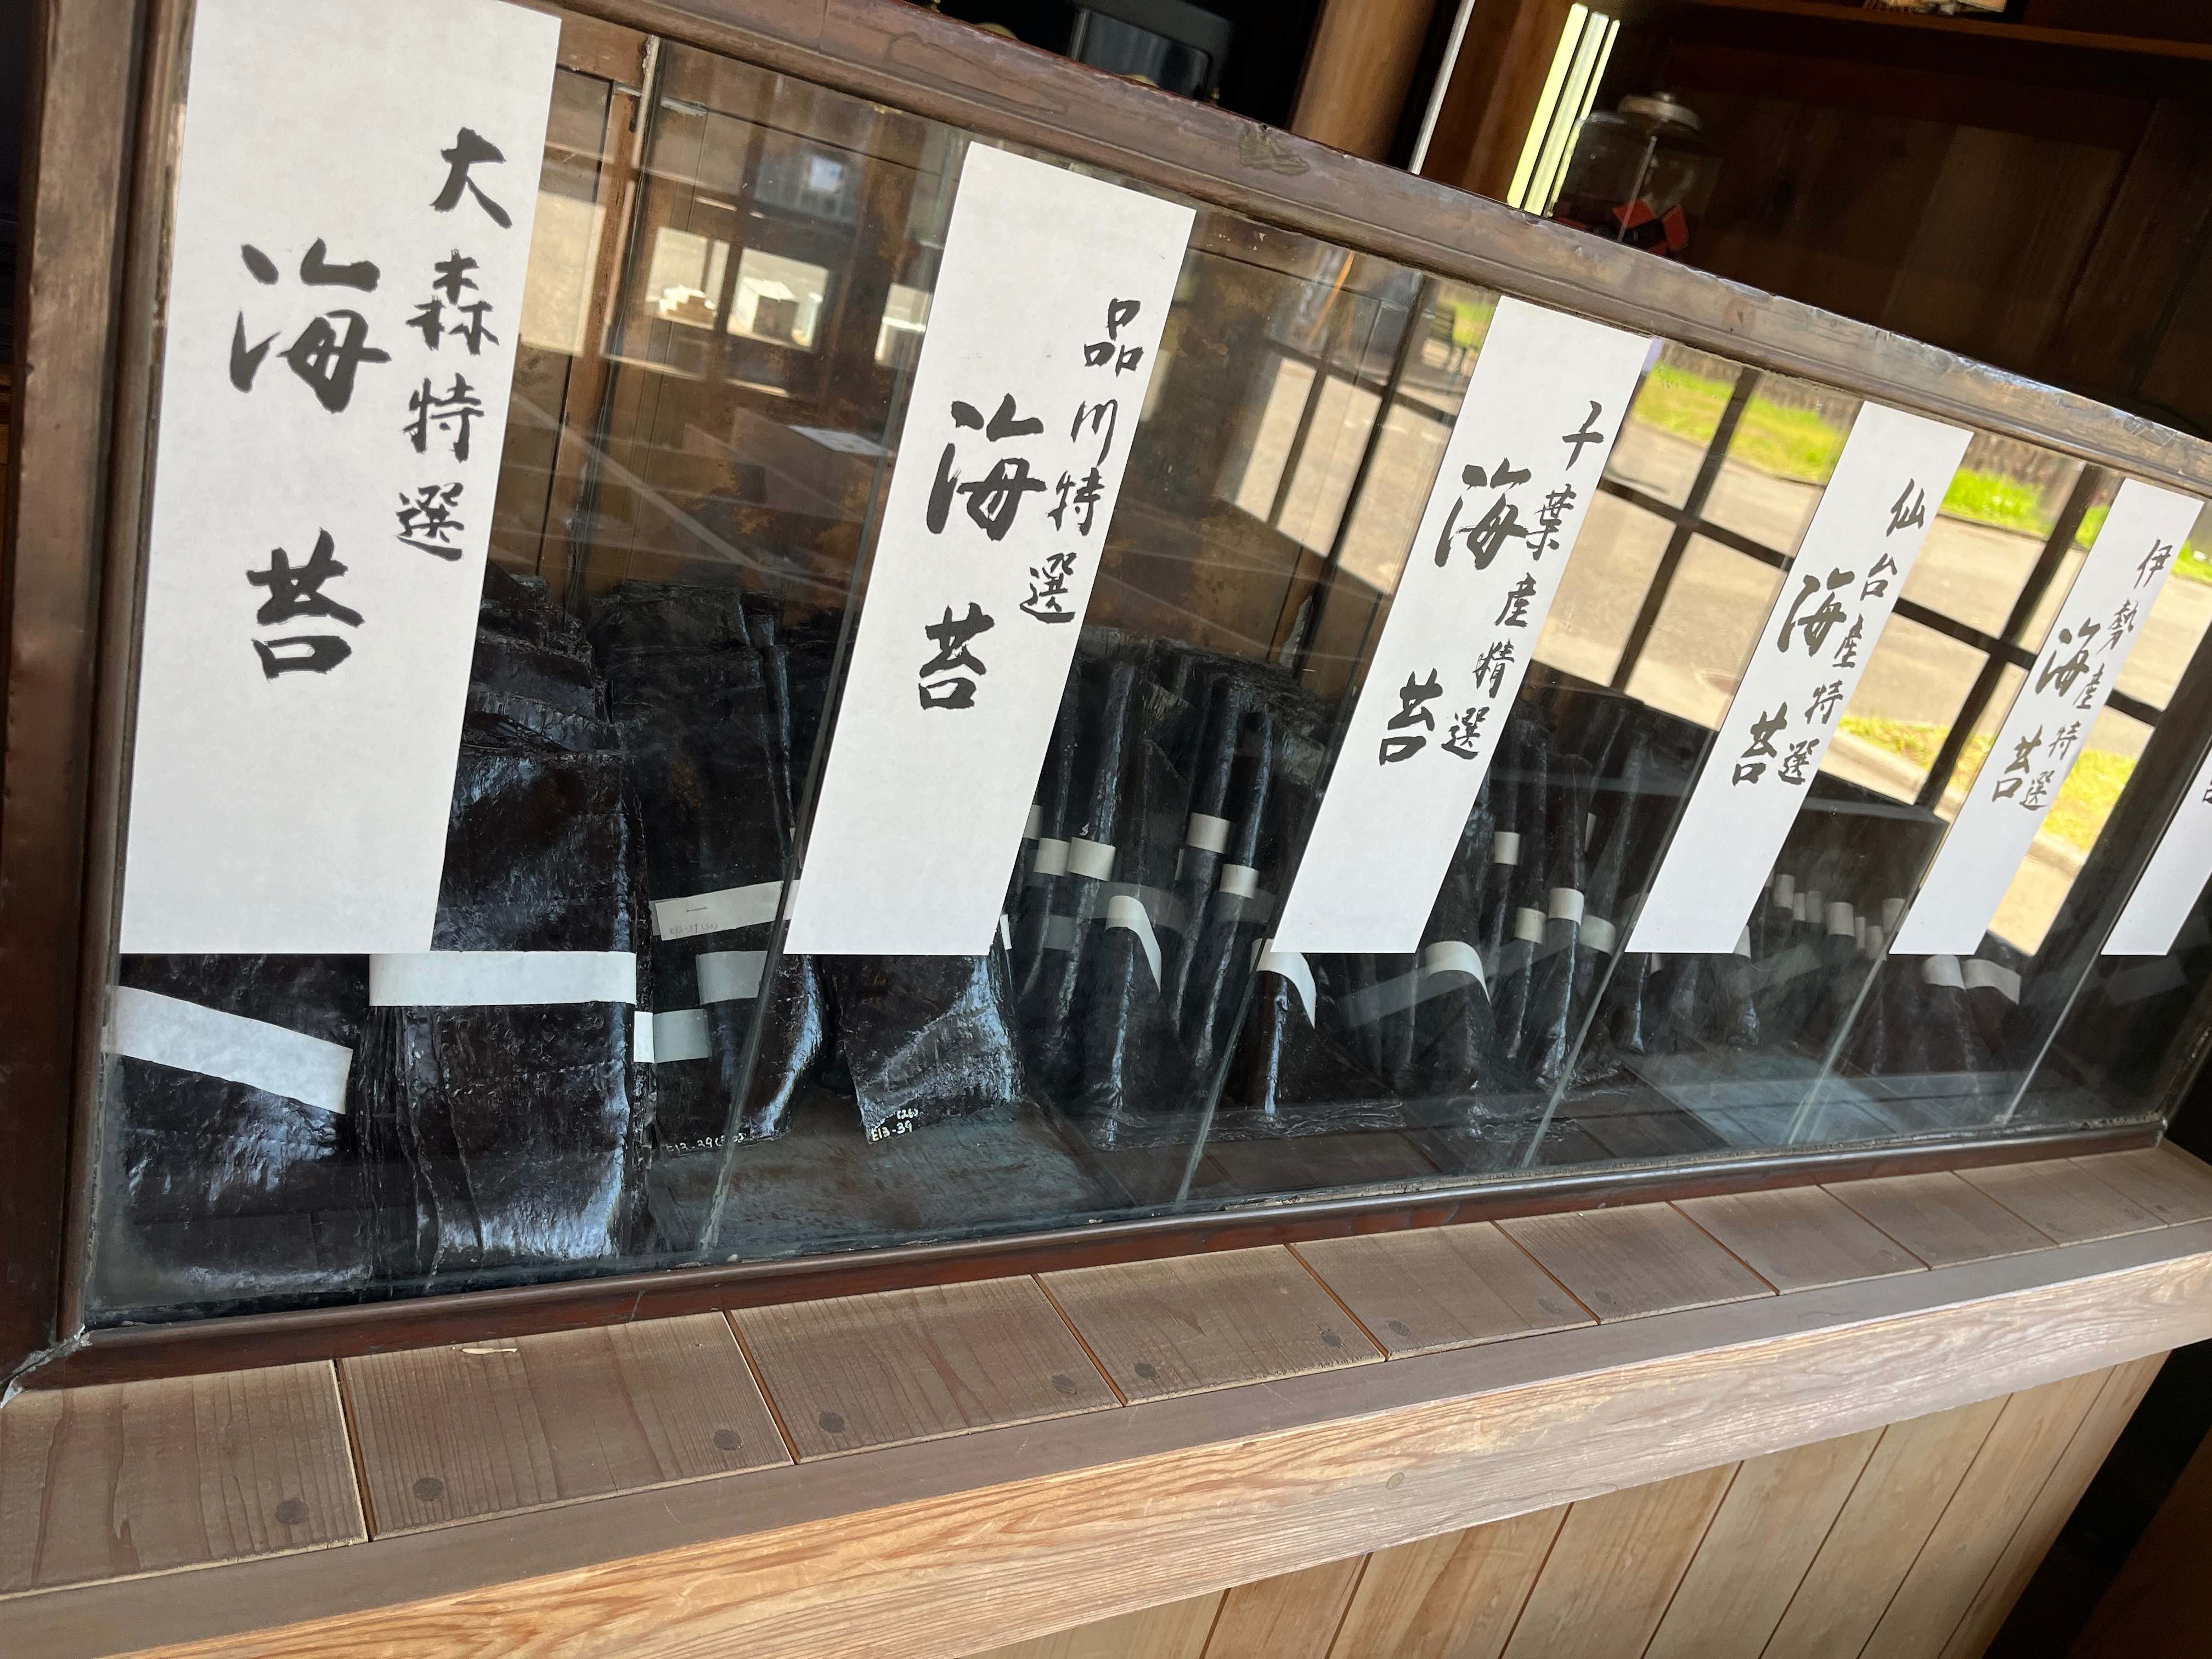 大森特選
海苔
品川特選
海苔
千葉産精選
海苔
仙台産特選
海苔
伊勢産特選
海苔
E13-39
(26)
E13-39